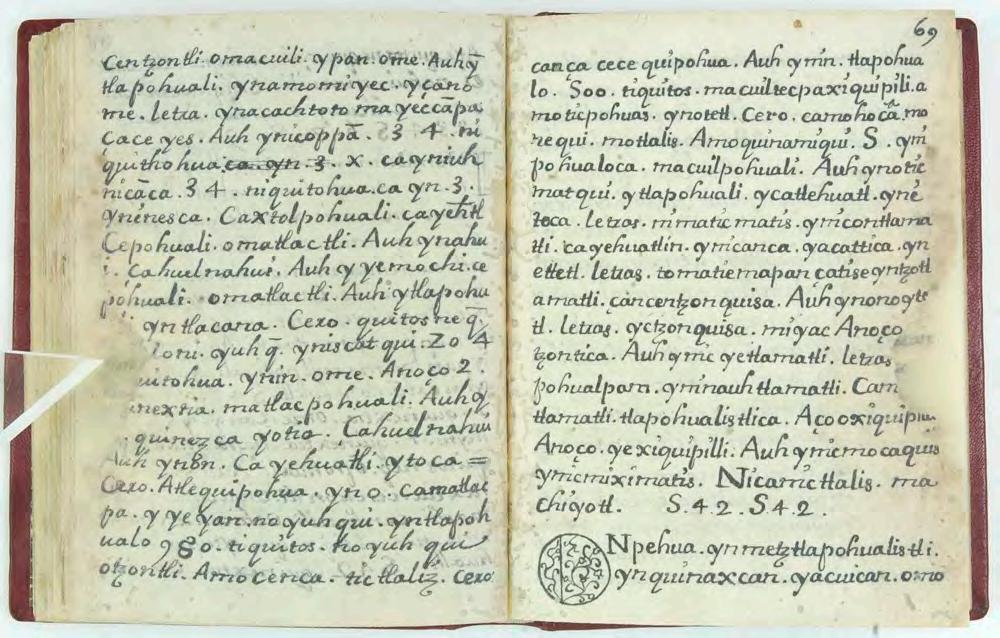 Centzontli. omacuili. ypan. ome. Auh q̄
tlapohuali. ynamomiyec. yçano
me. letra. ynacachtoto mayeccāpa
Cace yes. Auh ynicoppā. 3 4. ni
quithohua ca yn 3. x. ca yniuh
nicāca. 3 4. niquitohua. ca yn. 3.
yninesca. Caxtolpohuali. ca
Cepohuali. omatlactli. Auh ynahu
i. Cahuelnahui. Auh y yemochi. ce
pohuali. omatlactli. Auh ytlapohu
yntlacana. Cero. quitosneq̄
loni. yuh q̄. yniscatqui. 20 4
uitohua. ynin. ome. Anoço 2.
inextia. matlacpohuali. Auh y
quinezca yotia. Cahuelnahui
Auh ynōn. Ca yehuatli. ytoca =
Cero. Atlequipohua. yn o. camatlac
pa. y yeyan. no yuhqui. yntlapoh
ualo 980. tiquitos. no yuh qui
otzontli. Amo cenca. tictlaliz. Cero
69
cança cece quipohua. Auh ymn. tlapohua
lo. Soo. tiquitos. macuiltecpaxiquipili. a
moticpohuas. ynotetl. Cero. camohocā. mo
nequi. motlalis. Amoquinamiqui. S. ym
pohualoca. macuilpohuali. Auh ynotic
matqui. ytlapohuali. ycatlehuatl. ynē
toca. letras. nimaticmatis. ynicontlama
tli. ca yehuatlin. ynicanca. yacattica. yn
etetl. letras. tomatiemapan çatiseyntzotl
amatli. çancentzonquisa. Auh ynonoyte
tl. letras. yctzonquisa. miyac Anoço
tzontica. Auh ynic yetlamatli. letras
pohualpam. yninauhtlamatli. Cam
tlamatli. tlapohualistlica. Aço oxiquipi
Anoço. yexiquipilli. Auh ynicmocaquis
ynicmiximatis. Nicamictlalis. ma
chiyotl. S.4.2. S.4.2.
Npehua. ynmetztlapohualistli.
ynquinaxcan. yacuican. omo